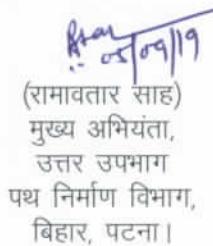 05/09/19
(रामावतार साह)
मुख्य अभियंता,
उत्तर उपभाग
पथ निर्माण विभाग,
बिहार, पटना।